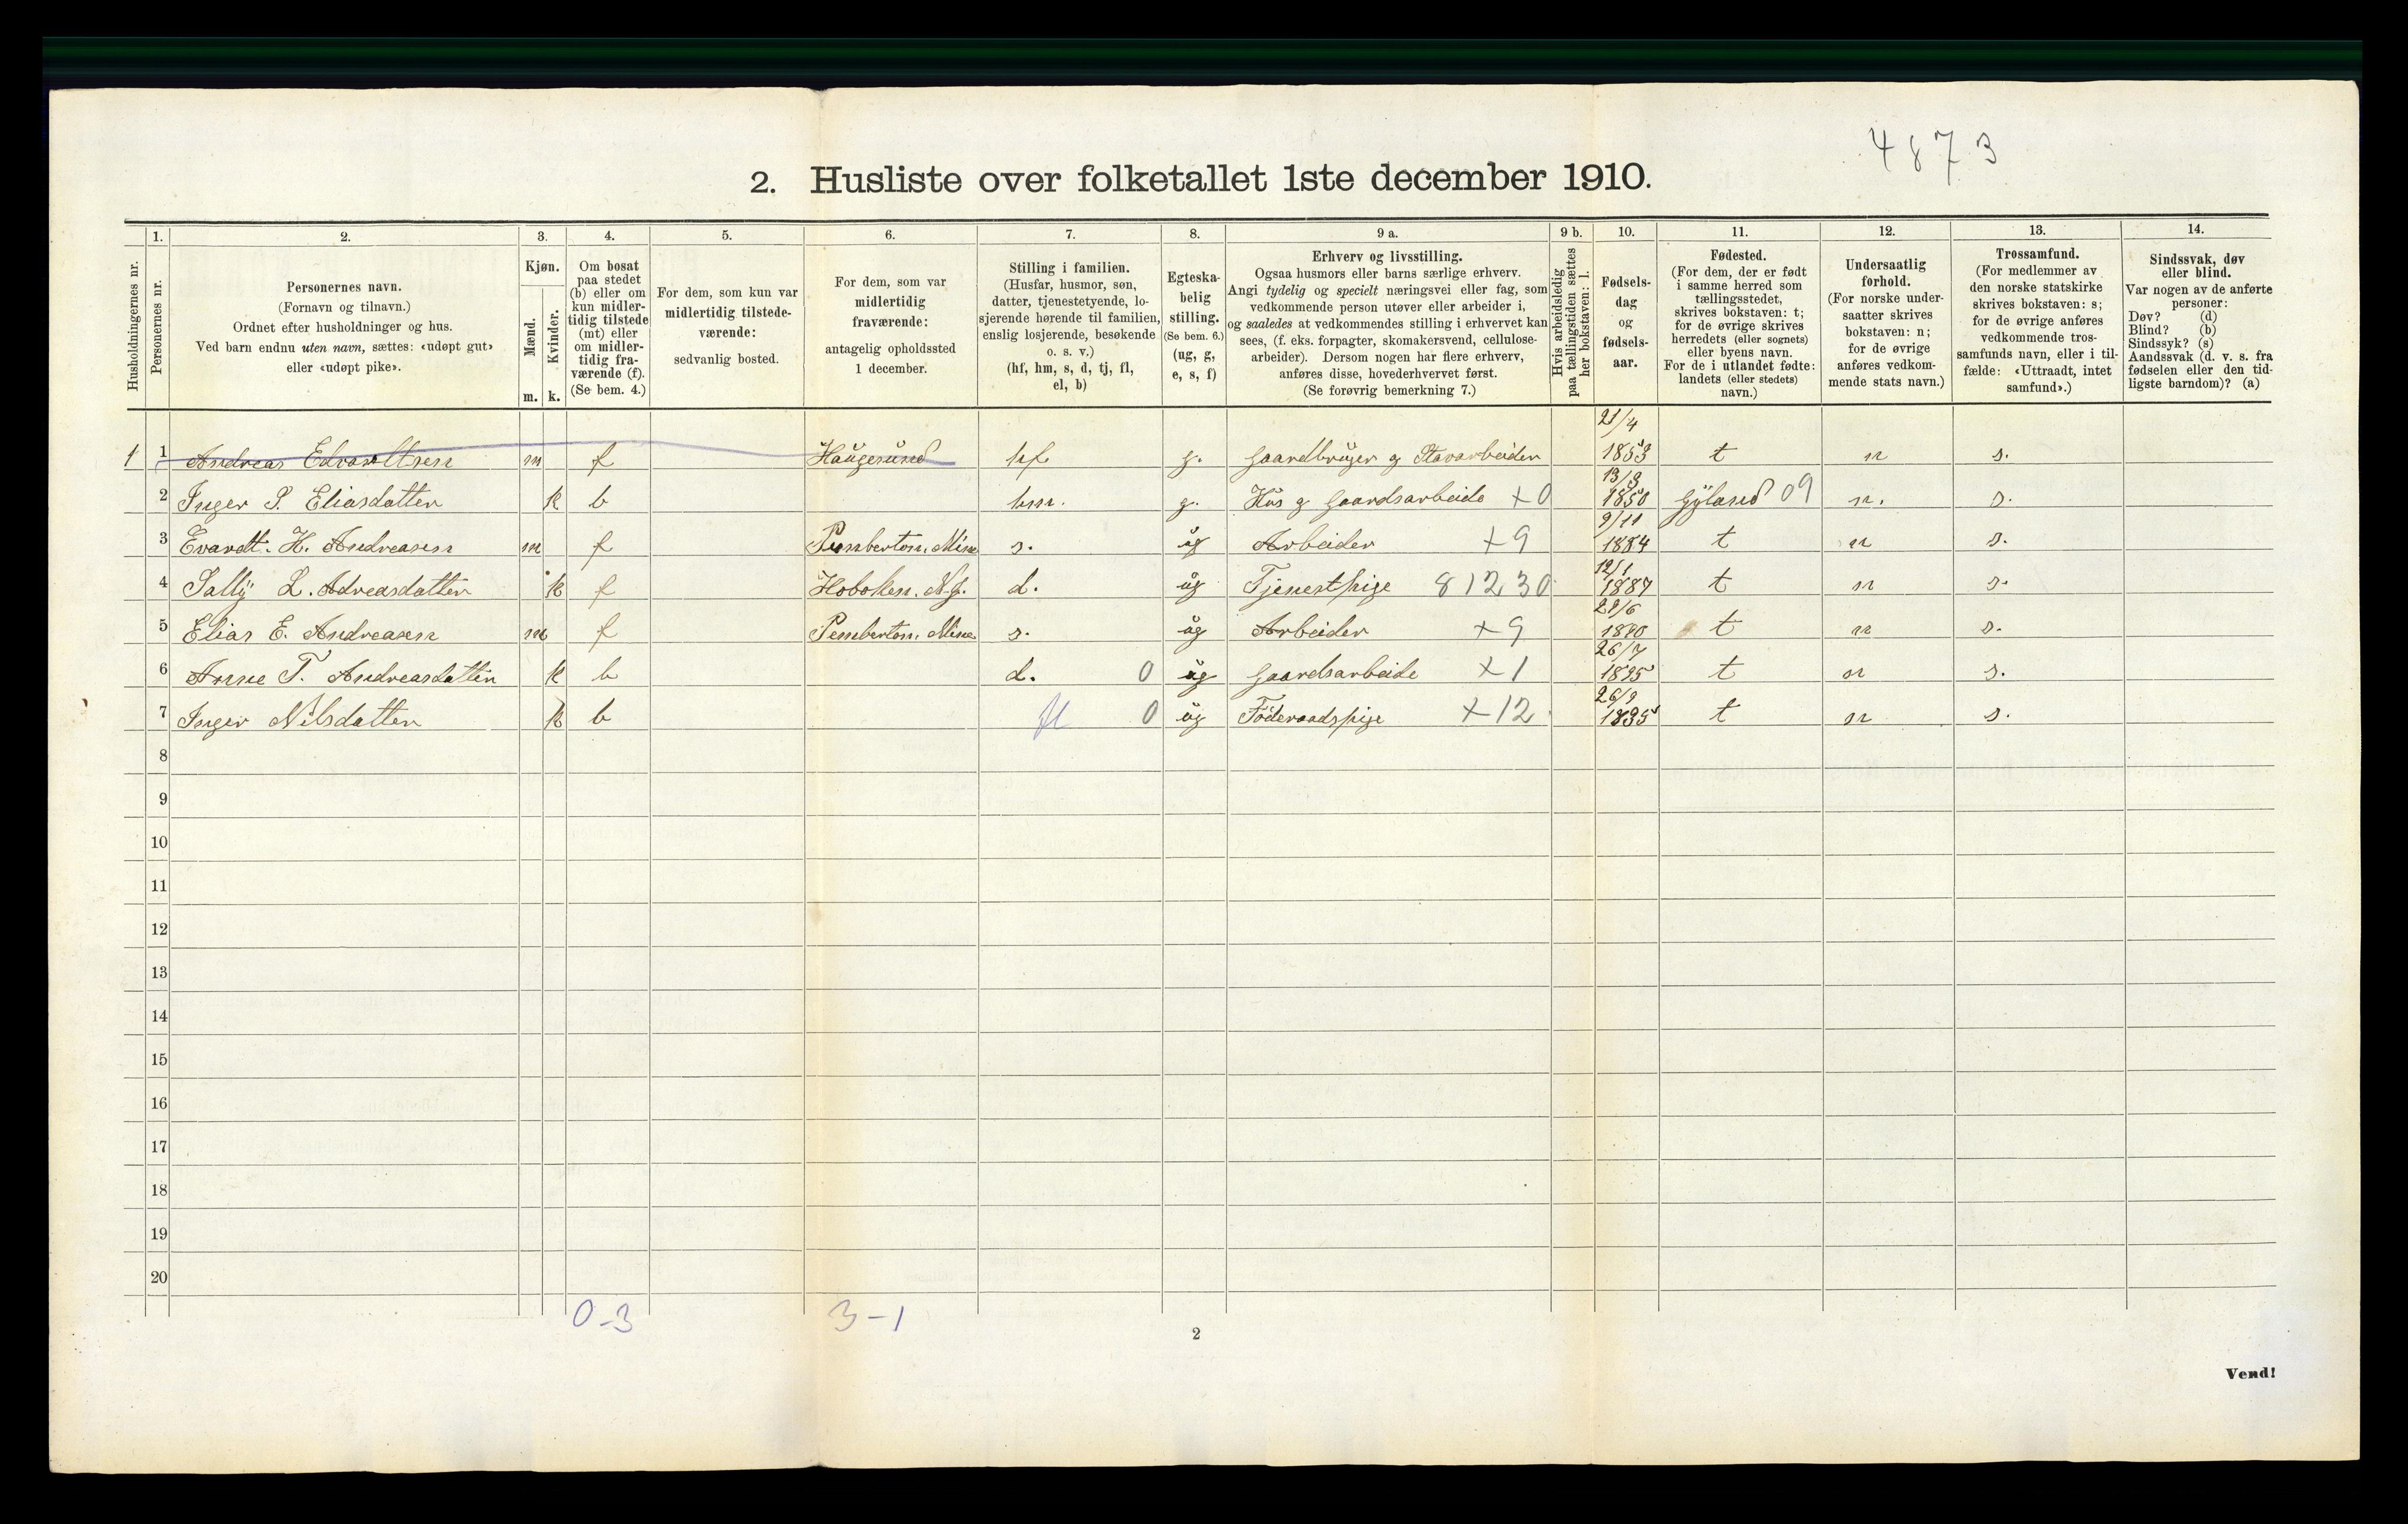 4873
2. Husliste over folketallet 1ste december 1910.
Husholdningernes nr.
1.
Personernes nr.
2.
Personernes navn.
(Fornavn og tilnavn.)
Ordnet efter husholdninger og hus.
Ved barn endnu uten navn, sættes: «udøpt gut»
eller «udøpt pike».
3.
Kjøn.
Mænd.
Kvinder.
m. k.
4.
Om bosat
paa stedet
(b) eller om
kun midler-
tidig tilstede
(mt) eller
om midler-
tidig fra-
værende (f).
(Se bem. 4.)
5.
For dem, som kun var
midlertidig tilstede-
værende:
sedvanlig bosted.
6.
For dem, som var
midlertidig
fraværende:
antagelig opholdssted
1 december.
7.
Stilling i familien.
(Husfar, husmor, søn,
datter, tjenestetyende, lo-
sjerende hørende til familien,
enslig losjerende, besøkende
o. s. v.)
(hf, hm, s, d, tj, fl,
el, b)
8.
Egteska-
belig
stilling.
(Se bem. 6.)
(ug, g,
e, s, f)
9 a.
Erhverv og livsstilling.
Ogsaa husmors eller barns særlige erhverv.
Angi tydelig og specielt næringsvei eller fag, som
vedkommende person utøver eller arbeider i,
og saaledes at vedkommendes stilling i erhvervet kan
sees, (f. eks. forpagter, skomakersvend, cellulose-
arbeider). Dersom nogen har flere erhverv,
anføres disse, hovederhvervet først.
(Se forøvrig bemerkning 7.)
9 b.
Hvis arbeidsledig
paa tællingstiden sættes
her bokstaven: l.
10.
Fødsels-
dag
og
fødsels-
aar.
11.
Fødested.
(For dem, der er født
i samme herred som
tællingsstedet,
skrives bokstaven: t;
for de øvrige skrives
herredets (eller sognets)
eller byens navn.
For de i utlandet fødte:
landets (eller stedets)
navn.)
12.
Undersaatlig
forhold.
(For norske under-
saatter skrives
bokstaven: n;
for de øvrige
anføres vedkom-
mende stats navn.)
13.
Trossamfund.
(For medlemmer av
den norske statskirke
skrives bokstaven: s;
for de øvrige anføres
vedkommende tros-
samfunds navn, eller i til-
fælde: «Uttraadt, intet
samfund».)
14.
Sindssvak, døv
eller blind.
Var nogen av de anførte
personer:
Døv? (d)
Blind? (b)
Sindssyk? (s)
Aandssvak (d. v. s. fra
fødselen eller den tid-
ligste barndom)? (a)
1 1 Andreas Edvardtsen m f Haugesund hf. g. Gaardbruger g Stavarbeider 21/4 1853 t n s.
2 Inger S. Eliasdatter k b hm. g. Hus g Gaardsarbeide +0 13/3 1850 Gyland 09 n. s.
3 Evardt. H. Andreasen m f Pemberton. Mine s. ug Arbeider +9 9/11 1884 t n s.
4 Sally L. Adreasdatter k f Hoboken. N.J. d. ug Tjenestpige 81230 12/1 1887 t n s.
5 Elias E. Andreasen m f Pemberton. Mine s. ug Arbeider +9 1890 t n s.
6 Anne T. Andreasdatter k b d. 0 ug Gaardsarbeide +1 26/7 1895 t n s.
7 Inger Nilsdatter k b fl 0 ug Föderaadspige +12 26/9 1835 t n s.
8
9
10
11
12
13
14
15
16
17
18
19
20
0-3 3-1
2
Vend!